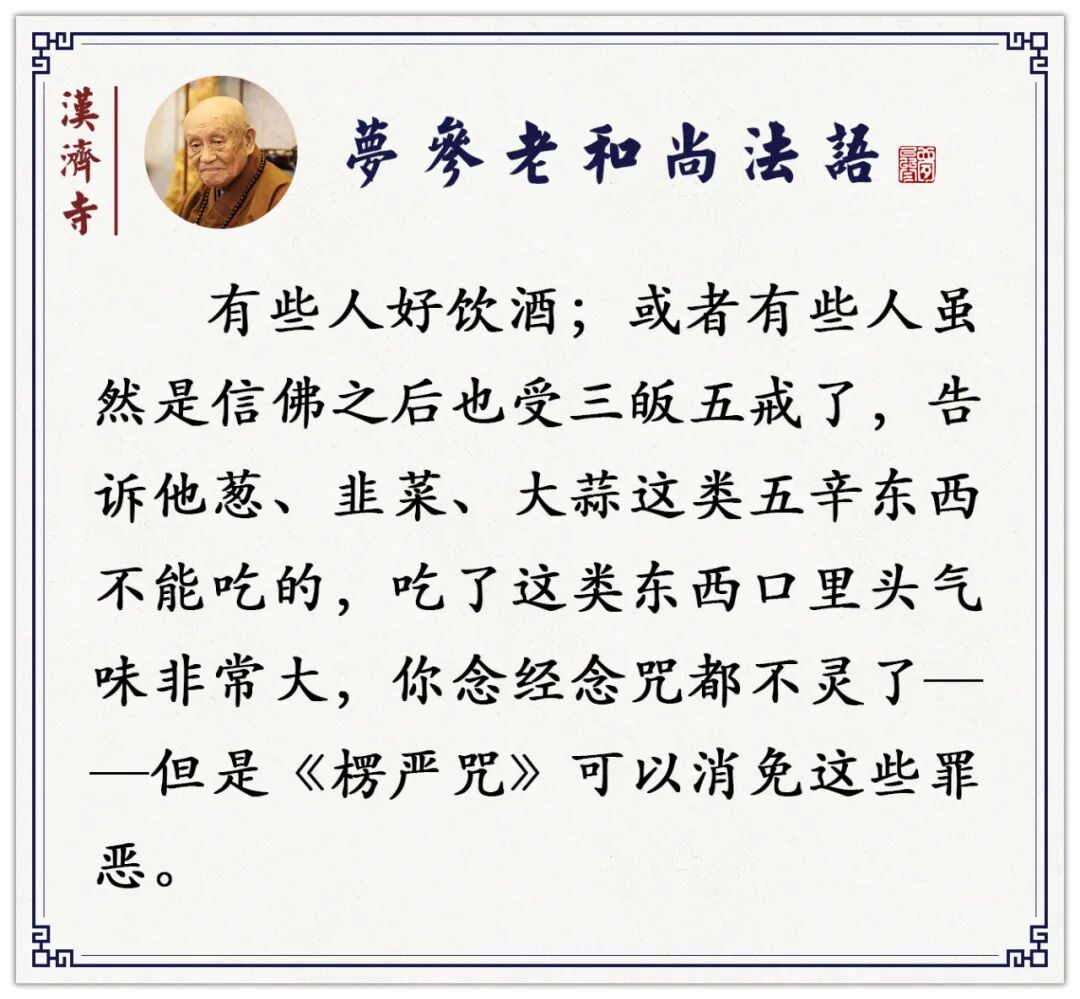 漢濟寺
夢參老和尚法語
有些人好饮酒；或者有些人虽
然是信佛之后也受三皈五戒了，告
诉他葱、韭菜、大蒜这类五辛东西
不能吃的，吃了这类东西口里头气
味非常大，你念经念咒都不灵了—
—但是《楞严咒》可以消免这些罪
恶。